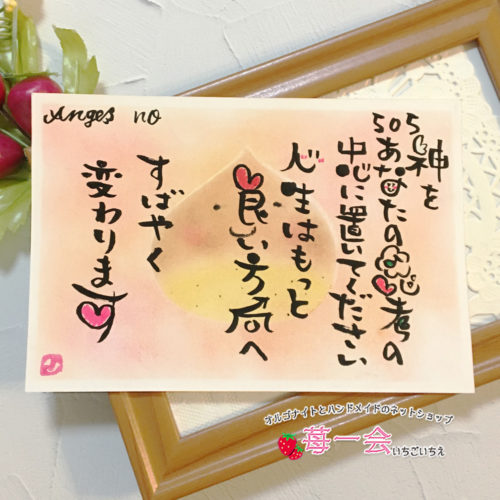 Anges no
505
神を
あなたの思考の
中心に置いてください
人生はもっと
良い方向へ
すばやく
変わります
オルゴナイトとハンドメイドのネットショップ
苺一会いちごいちえ